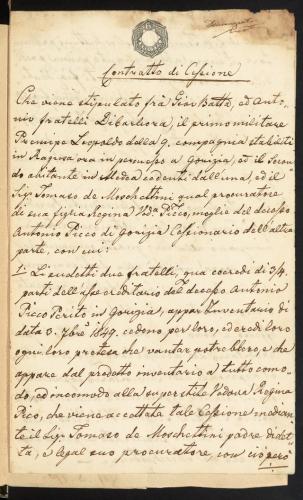 Contratto di Cessione
Che viene stipulato frà Giov Batta, ed Anto-
nio fratelli Dibarbora, il primo militare
Principe Leopoldo della 9. compagnia stabiliti
in Ragusa ora in permesso a Gorizia, ed il Secon
do abitante in Medea cedenti dall'una, ed il
Sig. Tomaso de Moschettini qual procuratore
di sua figlia Regina Vda Picco, moglie del decesso
Antonio Picco di Gorizia Cessionario dell'altra
parte, con cui:
1. Li sudetti due fratelli, qua coeredi di 3/4
parti dell'asse ereditario del decesso Antonio
Picco Perito in Gorizia, appar Inventario di
data 3. 7bre 1849. cedono per loro, ed eredi loro
ogni loro pretesa che vantar potrebbero, e che
appare dal prodotto inventario a tutto como-
do, ed incomodo alla superstite Vedova Regina
Pico, che viene accettata tale Cessione median-
te il Sig. Tomaso de Moschettini padre di det-
ta, e legal suo procuratore, con ciò però